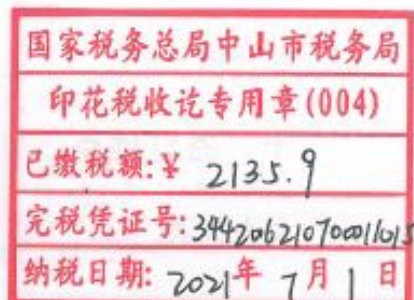 国家税务总局中山市税务局
印花税收讫专用章(004)
已缴税额:¥ 2135.9
完税凭证号:344206210700011015
纳税日期: 2021年 7月 1 日